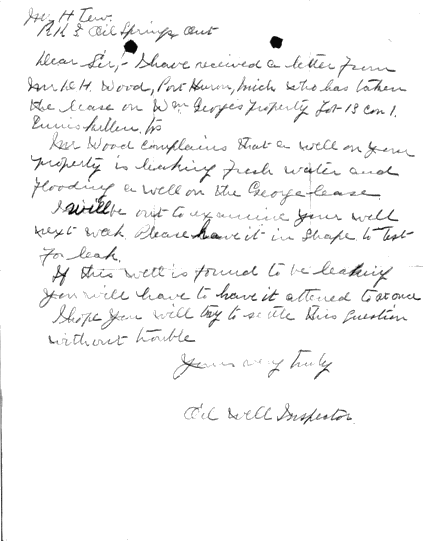 Mr. H Tew.
R.R.2 Oil Springs Ont
Dear Sir,- I have received a letter from
Mr. H. Wood, Port Huron, Mich who has taken
the lease on Wm Georges property Lot-18 con 1.
Enniskillen, Tp
Mr Wood complains that a well on your
property is leaking fresh water and
flooding a well on the George lease
I will be out to examine your well
next week Please have it in shape to test
for leak.
If this well is found to be leaking
you will have to have it attened to at once
I hope you will try to settle this question
without trouble
Yours very truly
Oil Well Inspector.